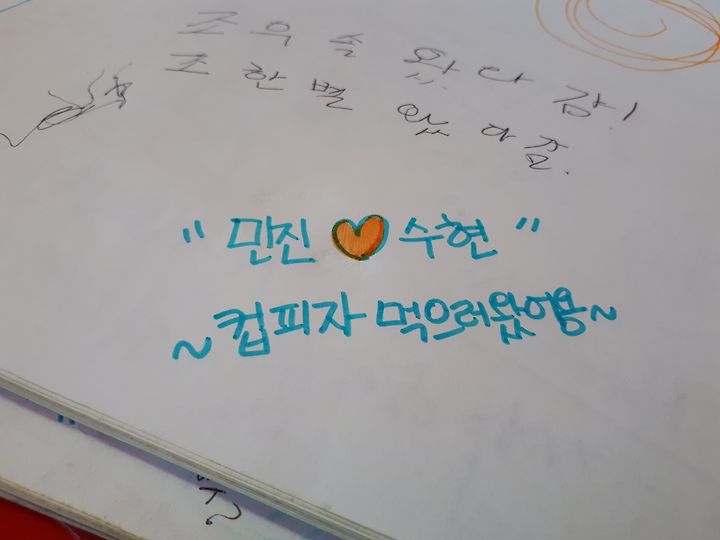 조 의 솔 왔 다 감!
조 한 별 왔 다 감.
"민진 ♥ 수현"
~컵피자 먹으러왔어용~